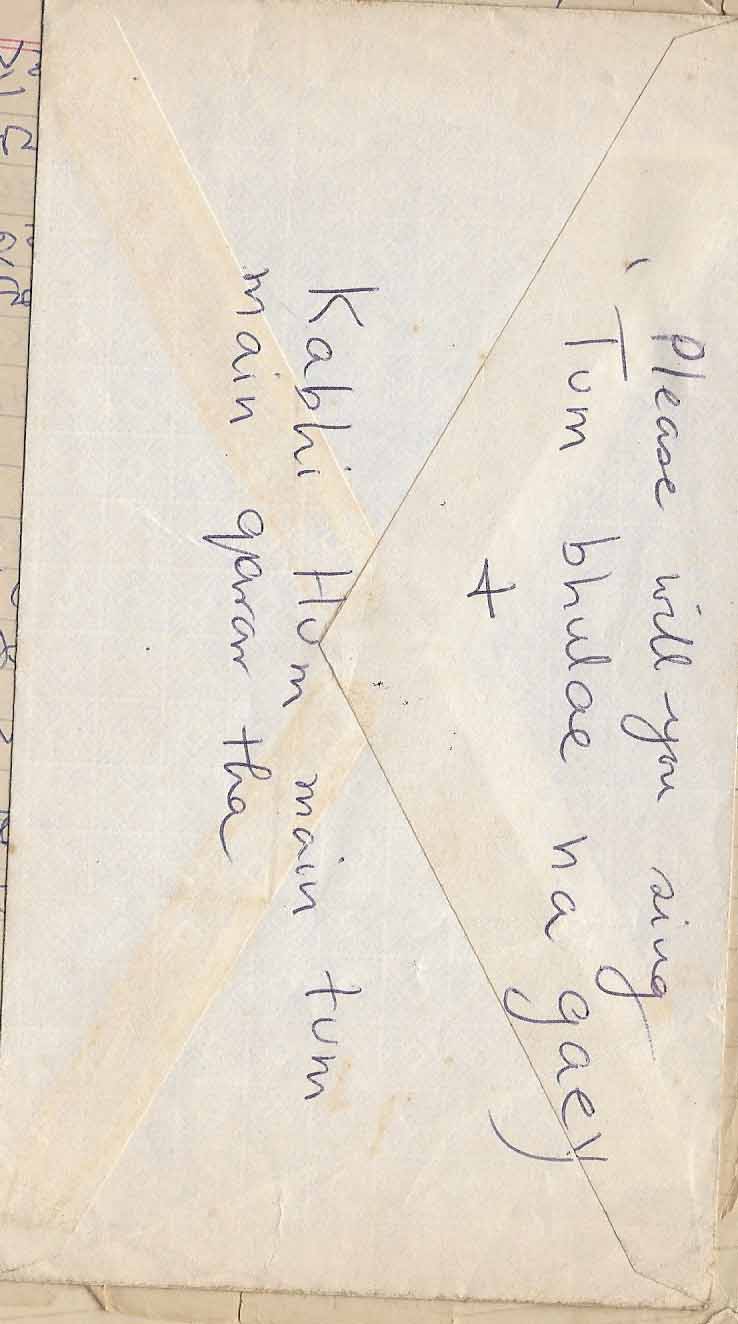 Please will you sing
Tum bhulae na gaey
+
Kabhi Hum main tum
main qarar tha